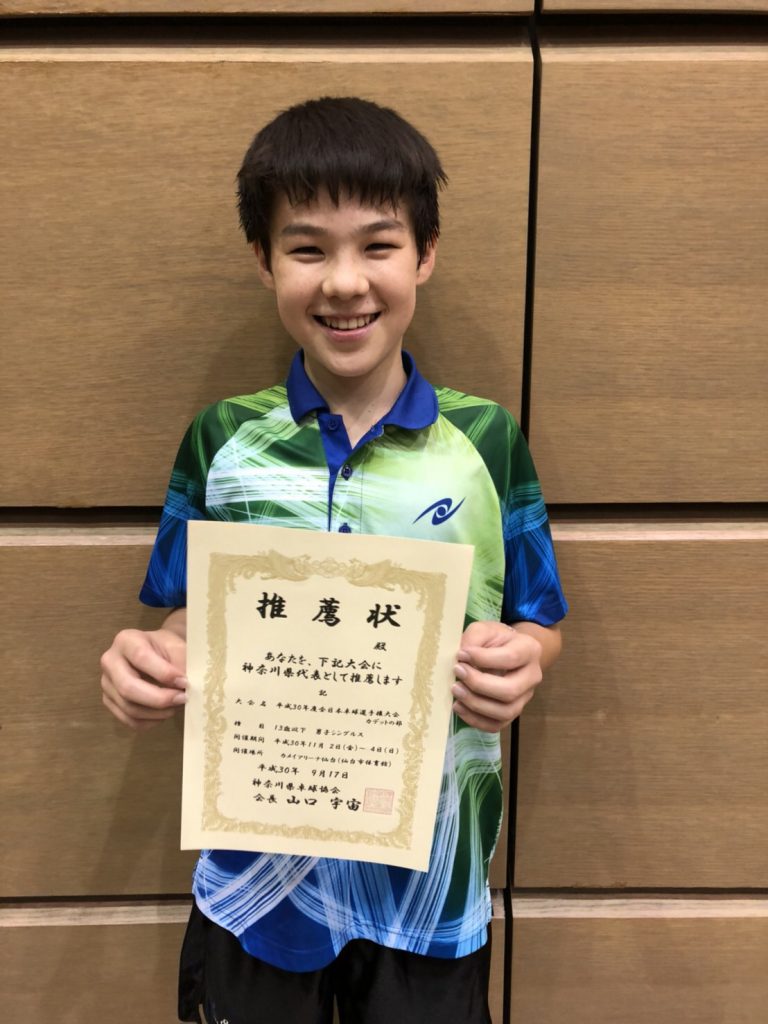 推薦状
殿
あなたを、下記大会に
神奈川県代表として推薦します
記
大会名 平成30年度全日本卓球選手権大会
カデットの部
種目 13歳以下 男子シングルス
開催期間 平成30年11月2日(金)～4日(日)
開催場所 カメイアリーナ仙台(仙台市体育館)
平成30年 9月17日
神奈川県卓球協会
会長 山口 宇宙